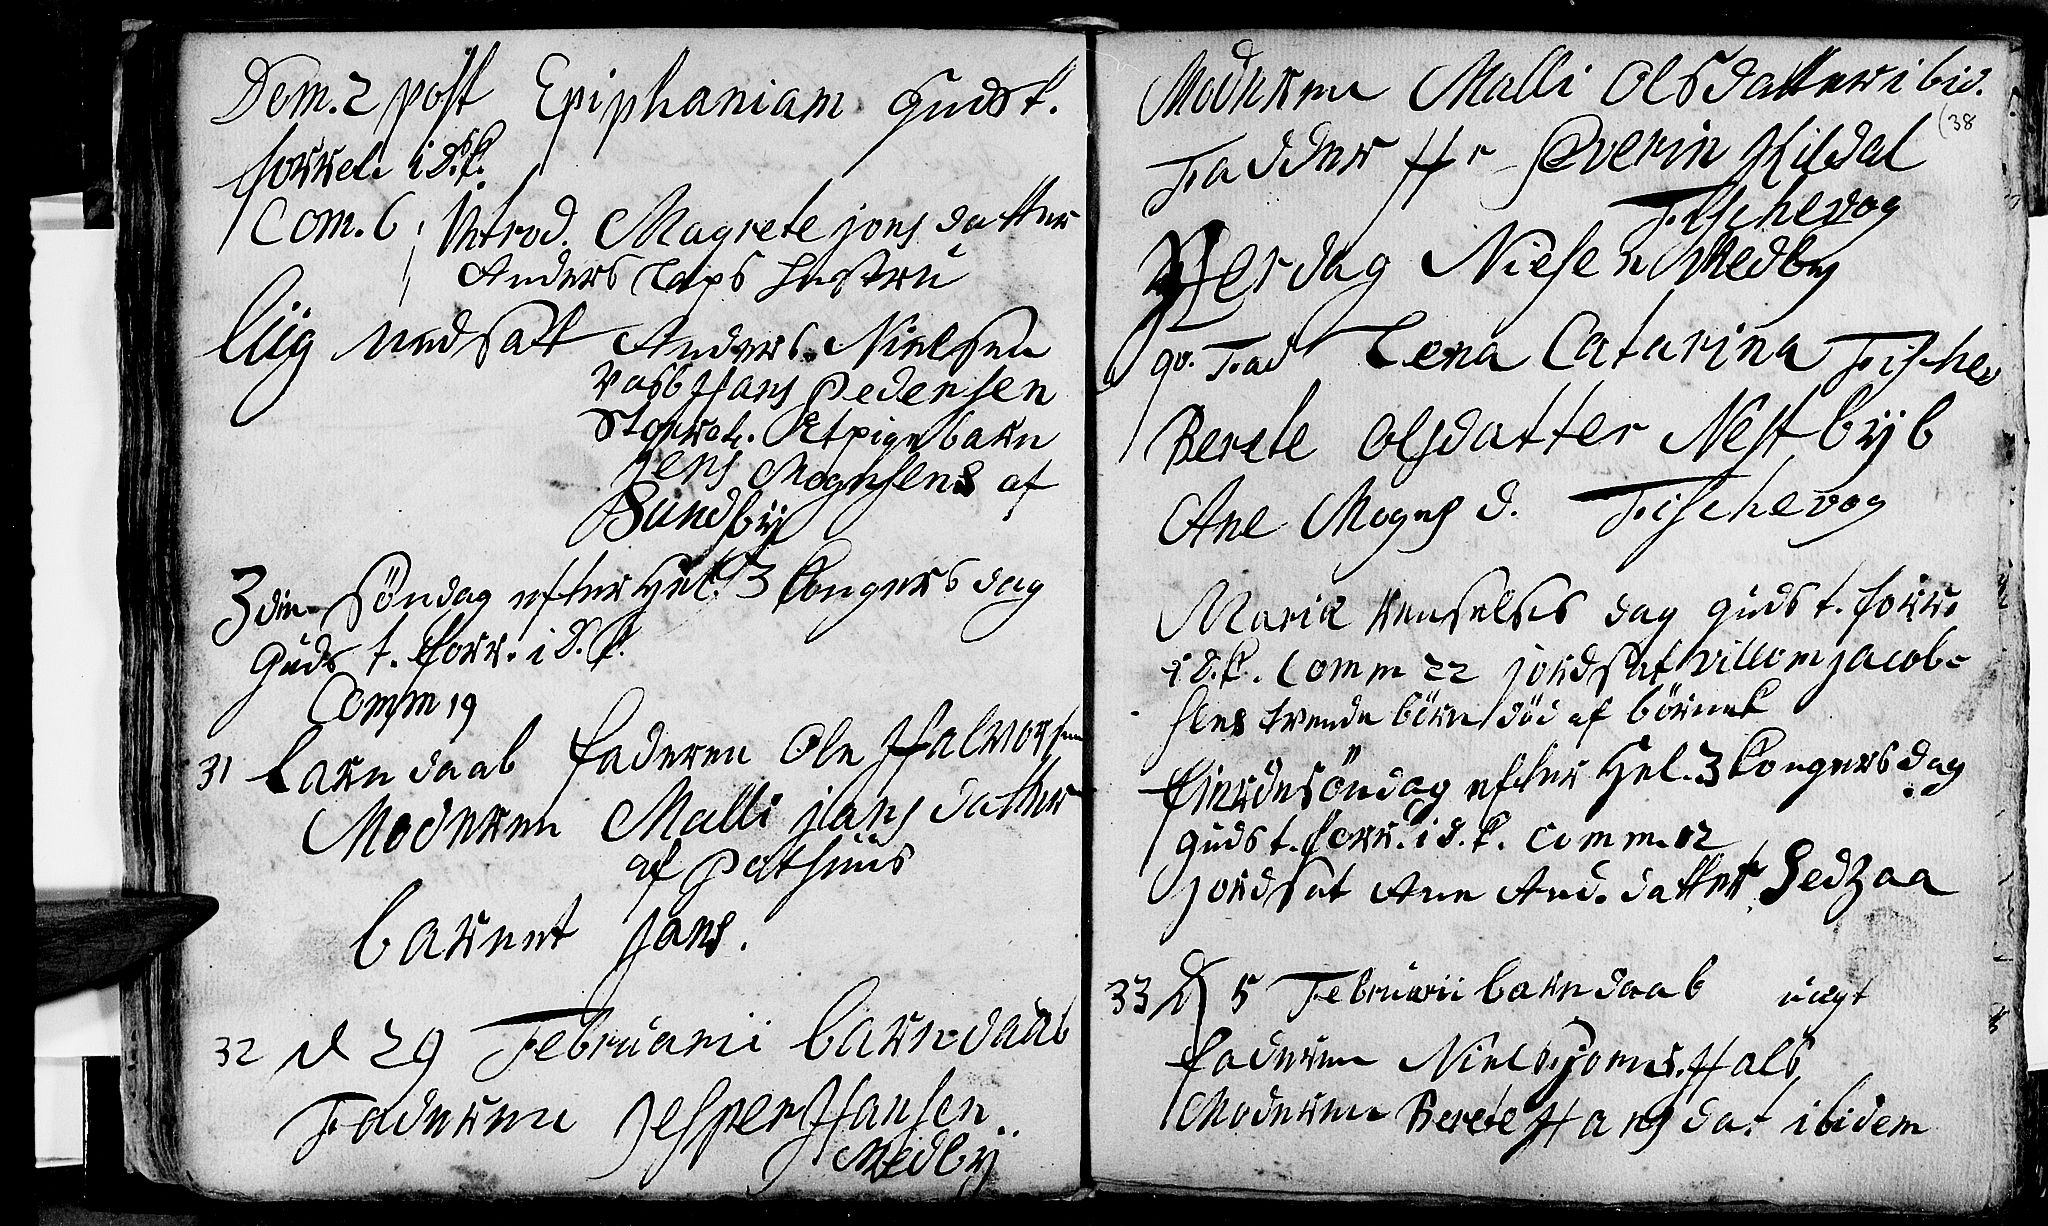 Dom. 2 post Epiphaniam Gudst.
forret. i d. k.
Com. 6 ; Introd. Magrete jons datter
Anders Caps hustru
liig nedsatt Anders Nielsen
Hans Pedersen
Et pige barn
jens Mognsens af
Sundbÿ
3die Söndag efter Hel. 3 kongers dag
Guds t. forr. i d. k.
Comm 19
31 barn daab faderen Ole Halvorsen
Moderen Malli jans datter
af Pothuus
barnet jans.
32 d 29 Februarii barn daab
Faderen Jesper Hansen
Medbÿ
Moderen Malli Olsdatter ibid.
(38
Fadder Hr Severin Kildal
Fischevog
Perdag Nielsen Medby
qv. Fad Lena Catarina Fischer
Berete Olsdatter Nestbÿ
Ane Mogns d. Fischevog
Mariæ Renselses dag guds t. forr.
i d. k. Comm 22 jordsat Villom jacob-
sens tvende börn död af börnek
fierde söndag efter Hel. 3 kongers dag
guds t. forr. i d. k. Comm. 12
jordsat Ane And. datter Sedzaa
33 D 5 Februarii barn daab uægt
faderen Niels jons. Hals
Moderen Berete Hans dat ibidem